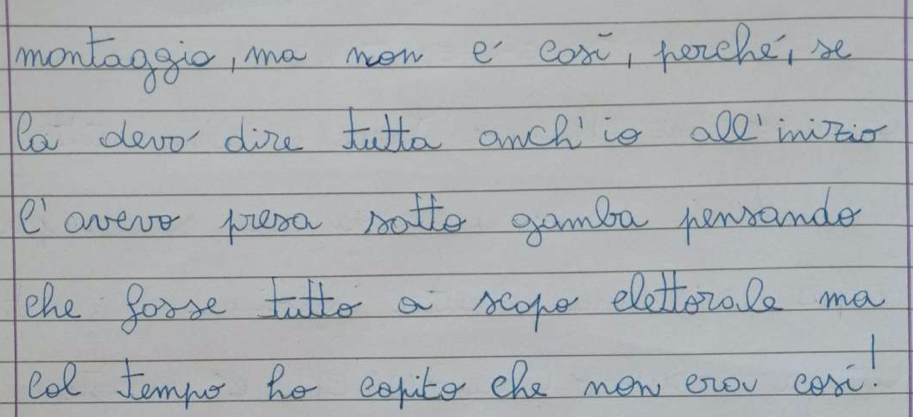 montaggio, ma non e' così, perché, se
la devo dire tutta anch'io all'inizio
l'avevo presa sotto gamba pensando
che fosse tutto a scopo elettorale ma
col tempo ho capito che non era così!